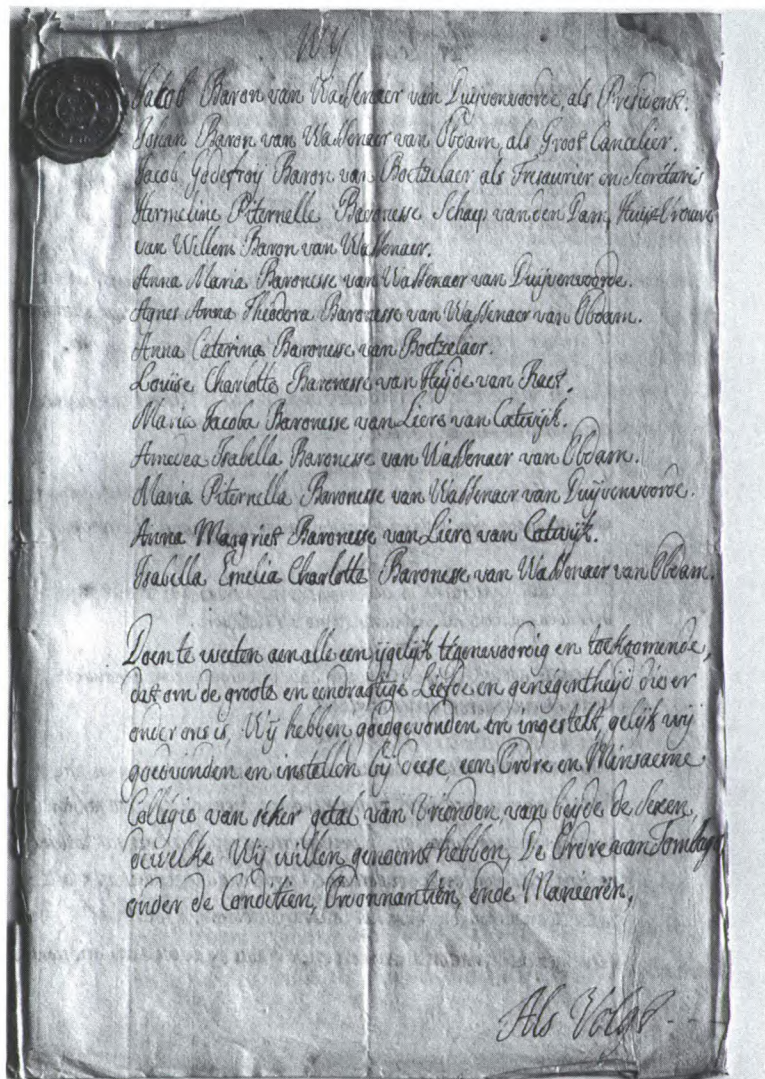 Wij
Jacob Baron van Wassenaer van Duijvenvoorde, als President.
Johan Baron van Wassenaer van Obdam, als Groot Cancelier.
Jacob Godefroij Baron van Boetzelaer als Tresaurier en Secretaris
Hermeline Piternelle Baronesse Schaep van den Dam, Huisvrouwe
van Willem Baron van Wassenaer.
Anna Maria Baronesse van Wassenaer van Duijvenvoorde.
Agnes Anna Theodora Baronesse van Wassenaer van Obdam.
Anna Caterina Baronesse van Boetzelaer.
Louise Charlotte Baronesse van Heijde van Raet.
Maria Jacoba Baronesse van Liere van Catwijk.
Amedea Isabella Baronesse van Wassenaer van Obdam.
Maria Piternella Baronesse van Wassenaer van Duijvenvoorde.
Anna Margriet Baronesse van Liere van Catwijk.
Isabella Emelia Charlotte Baronesse van Wassenaer van Obdam.
Doen te weeten aen alle een ijgelijk tégenwoordig en toekomende,
dat om de groote en eendragtige Liefde en genegentheijd die er
onder ons is, Wij hebben goedgevonden en ingestelt, gelijk wij
goedvinden en instellen bij deese een Ordre en Minsaeme
Collégie van séker getal van Vrienden, van beijde de Sexen,
dewelke Wij willen genoemt hebben, De Ordre van
onder de Conditien, Ordonnantiën, ende Manieren,
Als Volgt